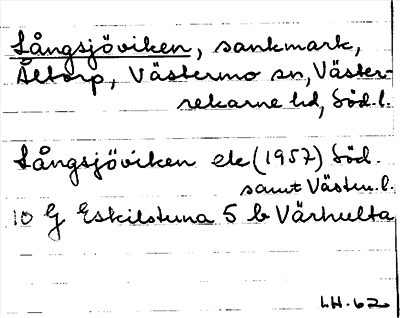 Långsjöviken, sankmark,
Åltorp, Västermo sn, Väster-
rekarne hd, Söd.l.
Långsjöviken ek (1957) Söd.
samt Västm.l.
10 G Eskilstuna 5 b Värhulta
LH-62